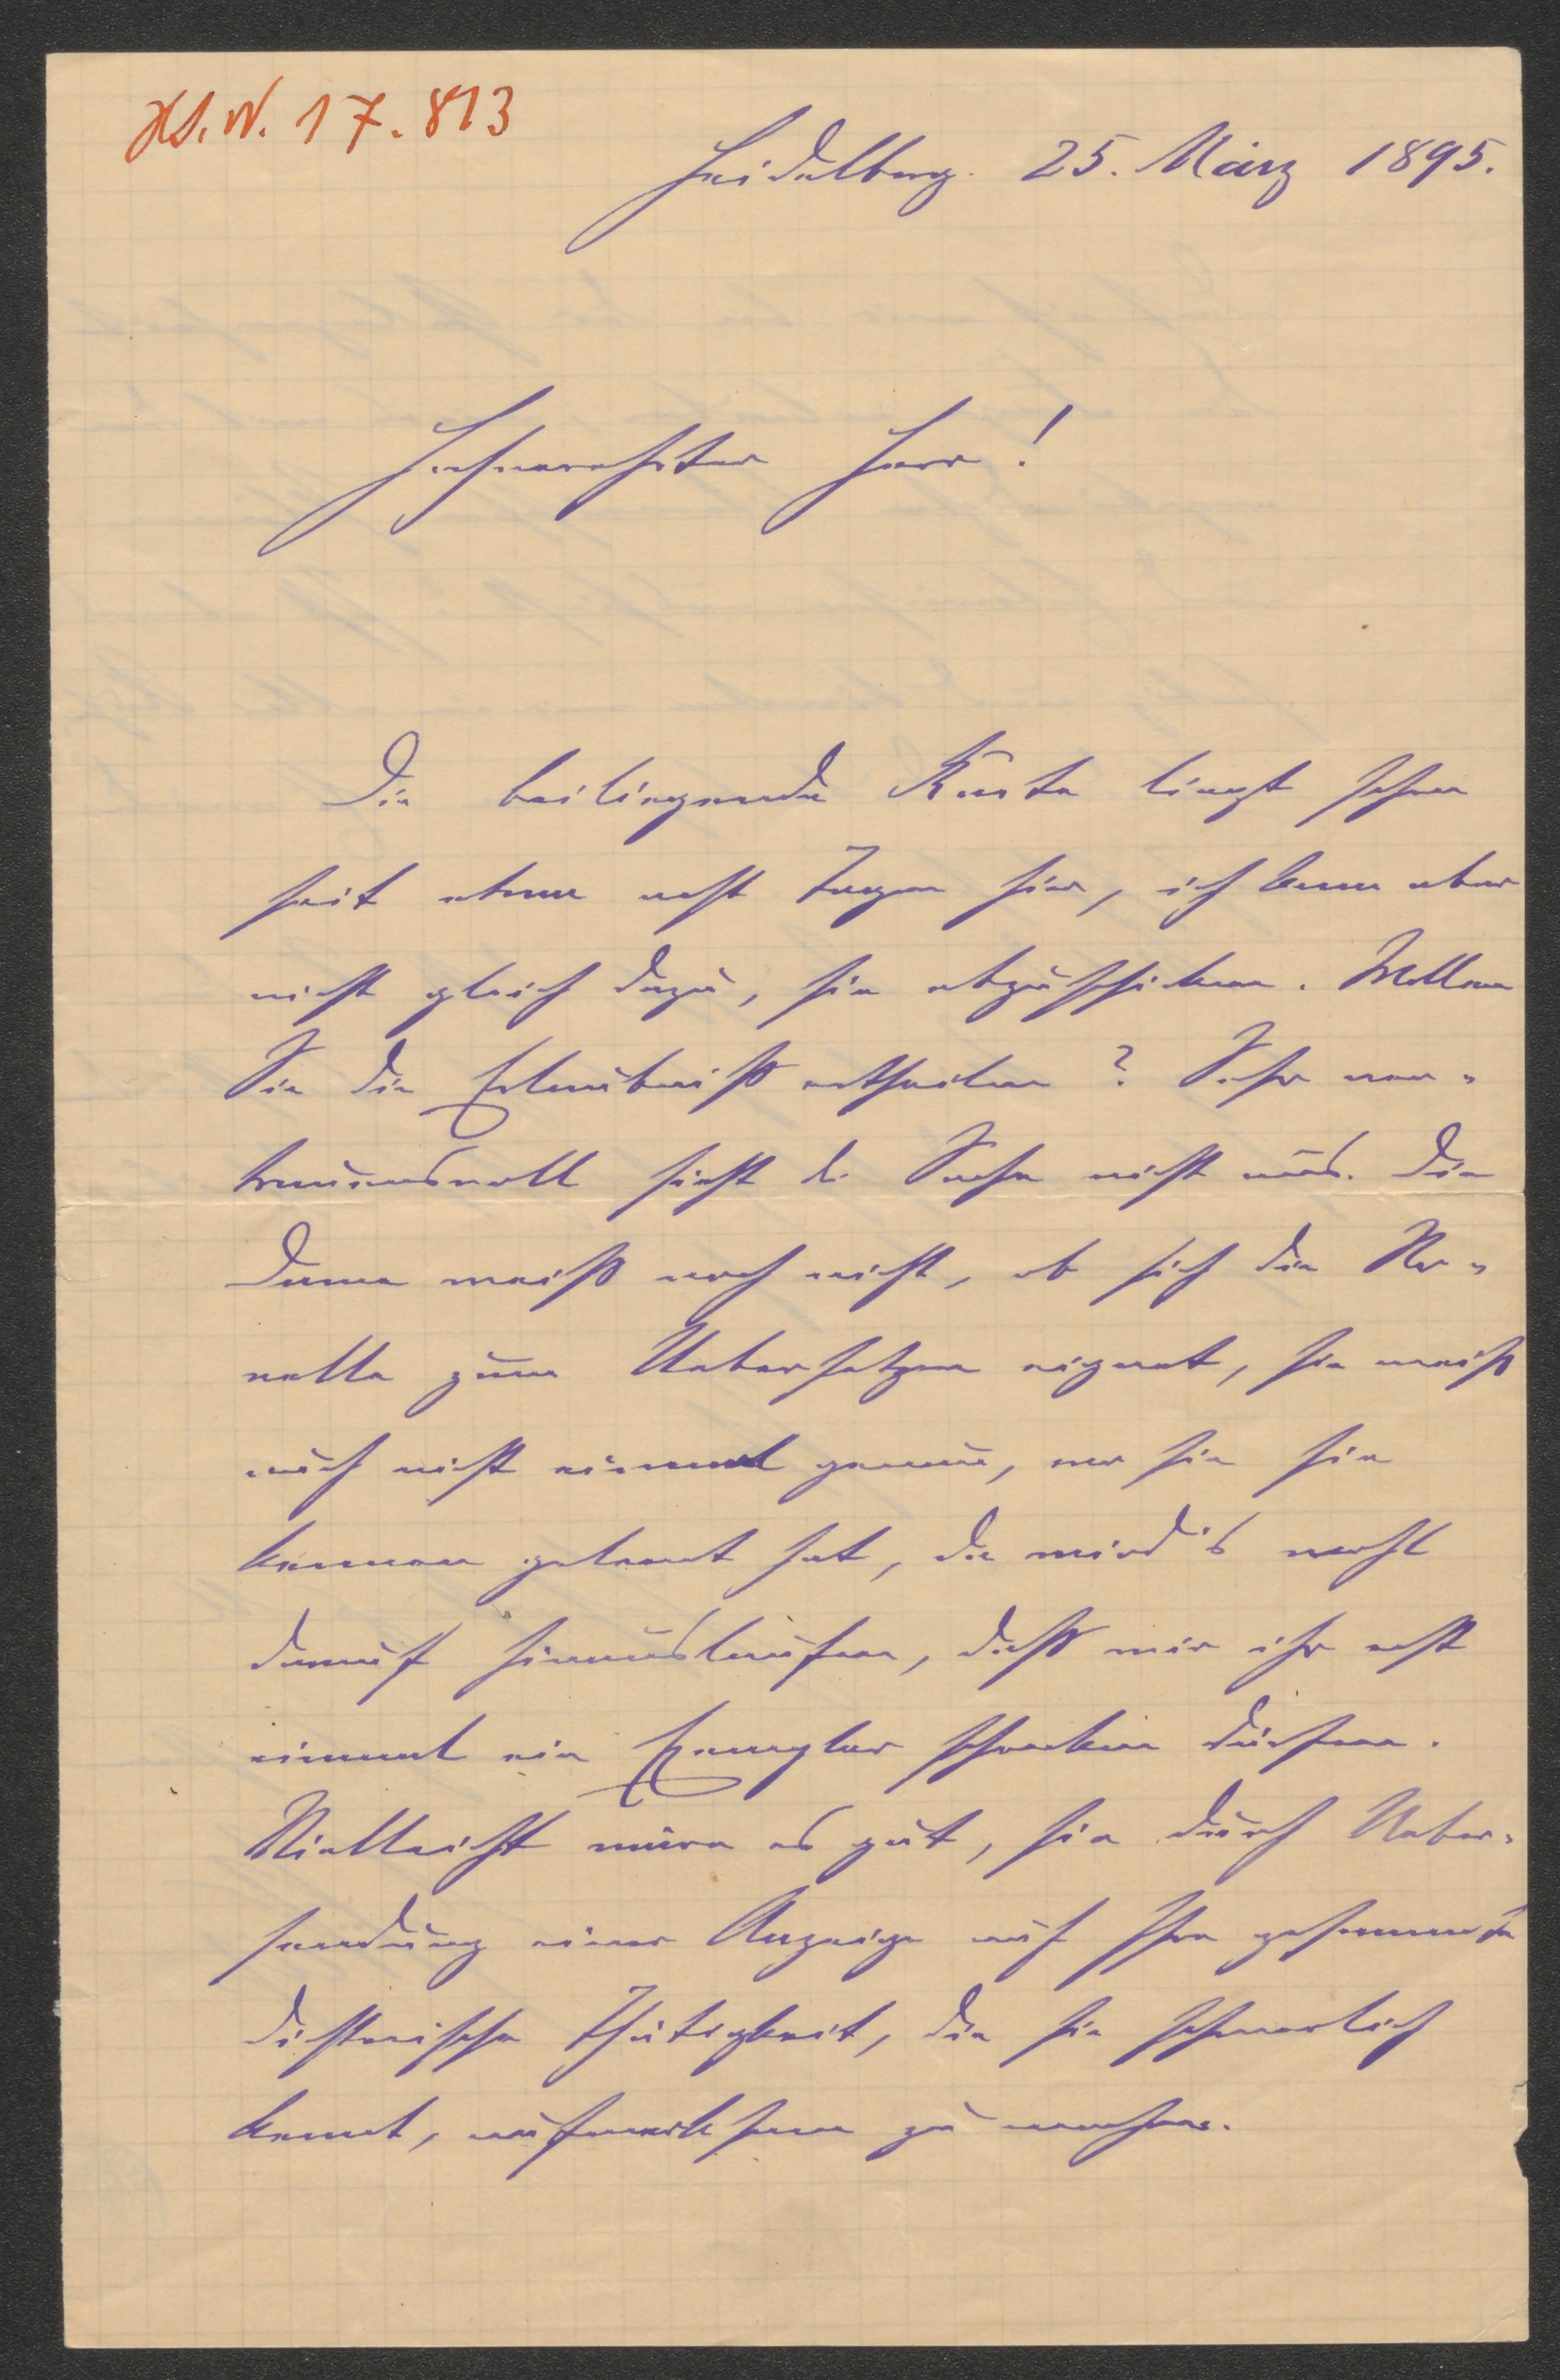 H.S.N. 17.813
Heidelberg. 25. März 1895.
Hochverehrter Herr!
Die beiliegende Karte liegt schon
seit etwa acht Tagen hier, ich kam aber
nicht gleich dazu, sie abzuschicken. Wollen
Sie die Erlaubniß ertheilen? Sehr ver-
trauensvoll sieht die Sache nicht aus. Die
Dame weiß noch nicht, ob sich die No-
velle zum Uebersetzen eignet, sie weiß
auch nicht einmal genau, wo sie sie
kennen gelernt hat, da wird's wohl
darauf hinauslaufen, daß wir ihr erst
einmal ein Exemplar schenken dürfen.
Vielleicht wäre es gut, sie durch Ueber-
sendung einer Anzeige auf Ihre gesammte
dichterische Thätigkeit, die sie schwerlich
kennt, aufmerksam zu machen.